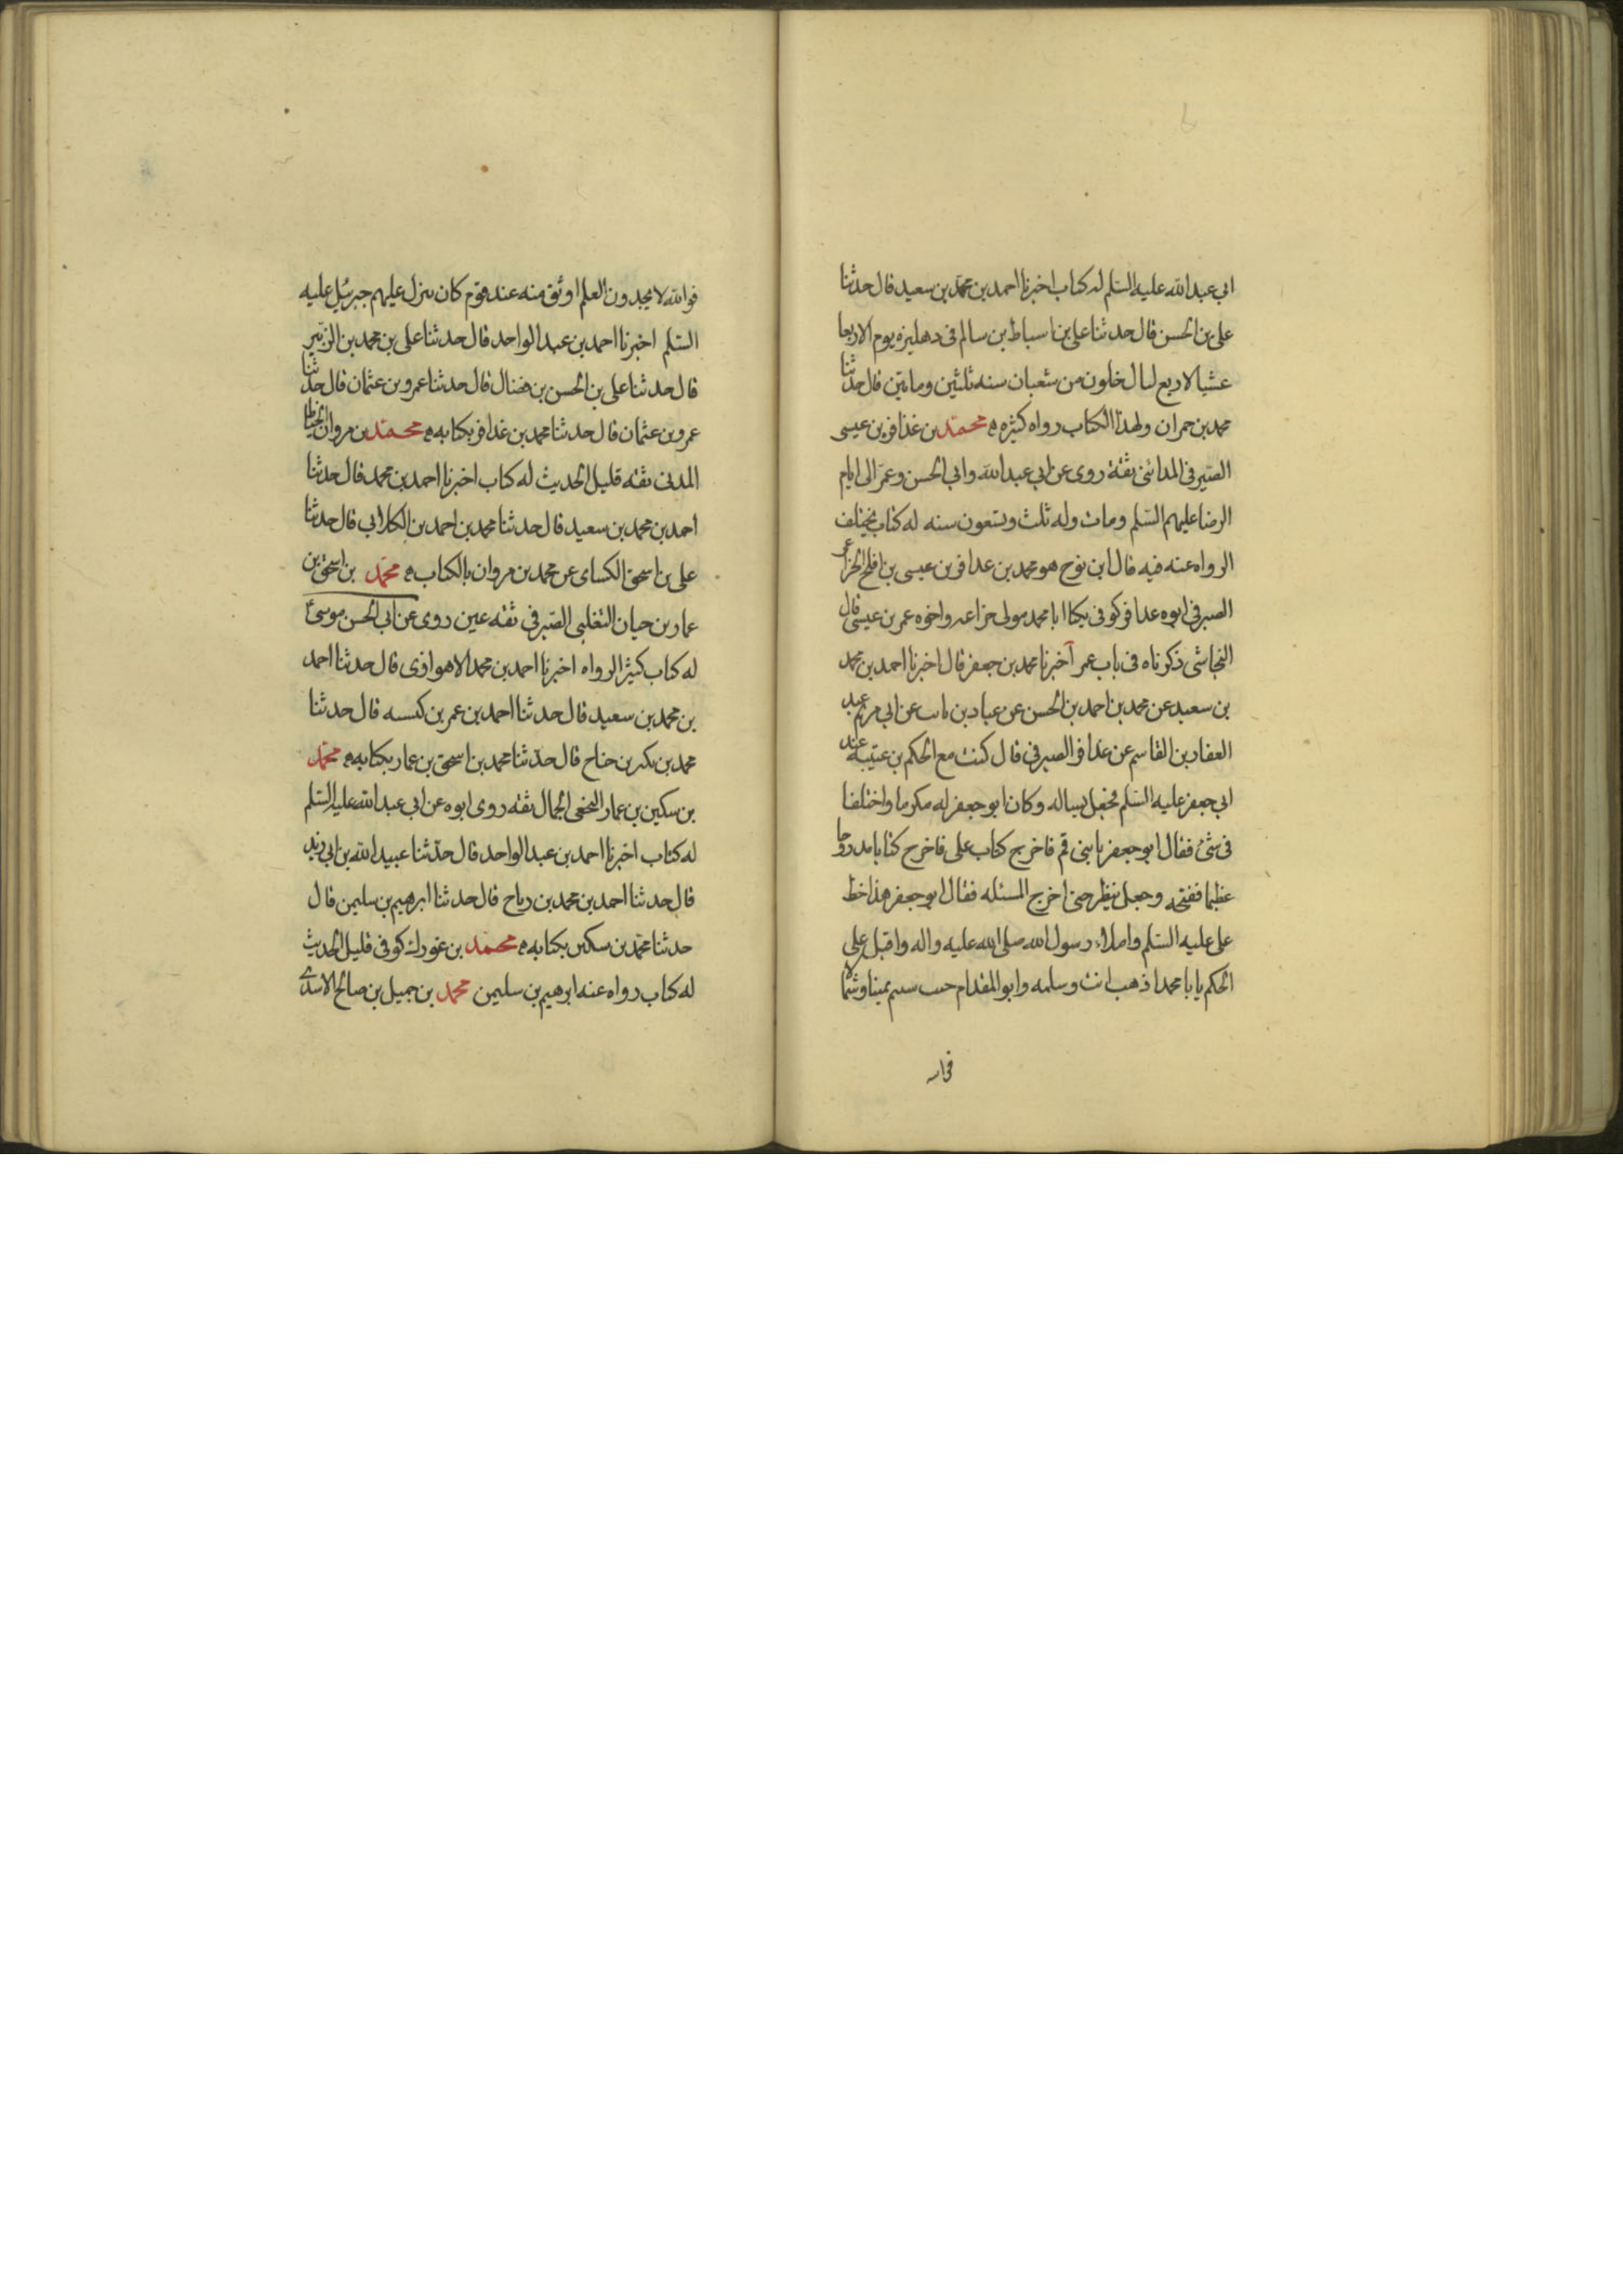 ابي عبد الله عليه السلم له كتاب اخبرنا احمد بن محمد بن سعيد قال حدثنا
على بن الحسن قال حدثنا على بن اسباط بن سالم فى دهليزه يوم الاربعا
عشيا لاربع ليال خلون من شعبان سنه ثلثين ومايتين قال حدثنا
محمد بن حمران ولهذا الكتاب رواه كثيره محمد بن عذافر بن عيسى
الصيرفى المدائنى ثقة روى عن ابي عبد الله وابي الحسن وعمر الى ايام
الرضا عليهم السلم ومات وله ثلث وتسعون سنه له كتاب يختلف
الرواه عنه فيه قال ابن نوح هو محمد بن عذافر بن عيسى بن افلح الخزاعى
الصيرفى ابوه عذافر كوفى يكنا ابا محمد مولى خزاعه واخوه عمر بن عيسى قال
النجاشى ذكرناه فى باب عمر اخبرنا محمد بن جعفر قال اخبرنا احمد بن محمد
بن سعيد عن محمد بن احمد بن الحسن عن عباد بن ثابت عن ابي مريم عبد
الغفار بن القاسم عن عذافر الصيرفى قال كنت مع الحكم بن عتيبة عند
ابى جعفر عليه السلم فجعل يساله وكان ابو جعفر له مكرما واختلفا
فى شئ فقال ابو جعفر يا بنى قم فاخرج كتاب على فاخرج كتابا مدروجا
عظيما ففتحه وجعل ينظر حتى اخرج المسئله فقال ابو جعفر هذا خط
على عليه السلم واملاء رسول الله صلى الله عليه واله واقبل على
الحكم يا با محمد اذهب انت وسلمه وابو المقدام حيث شئتم يمينا وشمالا
فوالله
فوالله لا يجدون العلم اوثق منه عند قوم كان ينزل عليهم جبرئيل عليه
السلم اخبرنا احمد بن عبد الواحد قال حدثنا على بن محمد بن الزبير
قال حدثنا على بن الحسن بن فضال قال حدثنا عمرو بن عثمان قال حدثنا
عمرو بن عثمان قال حدثنا محمد بن عذافر بكتابه محمد بن مروان الحناط
المدنى ثقه قليل الحديث له كتاب اخبرنا احمد بن محمد قال حدثنا
احمد بن محمد بن سعيد قال حدثنا محمد بن احمد بن الكلابى قال حدثنا
على بن اسحق الكساى عن محمد بن مروان بالكتاب محمد بن اسحق بن
عمار بن حيان التغلبى الصيرفى ثقه عين روى عن ابى الحسن موسى ع
له كتاب كثير الرواه اخبرنا احمد بن محمد الاهوازى قال حدثنا احمد
بن محمد بن سعيد قال حدثنا احمد بن عمر بن كيسبه قال حدثنا
محمد بن بكر بن جناح قال حدثنا محمد بن اسحق بن عمار بكتابه محمد
بن سكين بن عمار النخعى الجمال ثقه روى ابوه عن ابى عبد الله عليه السلم
له كتاب اخبرنا احمد بن عبد الواحد قال حدثنا عبيد الله بن ابى زيد
قال حدثنا احمد بن محمد بن رباح قال حدثنا ابرهيم بن سليمن قال
حدثنا محمد بن سكين بكتابه محمد بن غورك كوفى قليل الحديث
له كتاب رواه عنه ابرهيم بن سليمن محمد بن جميل بن صالح الاسدى